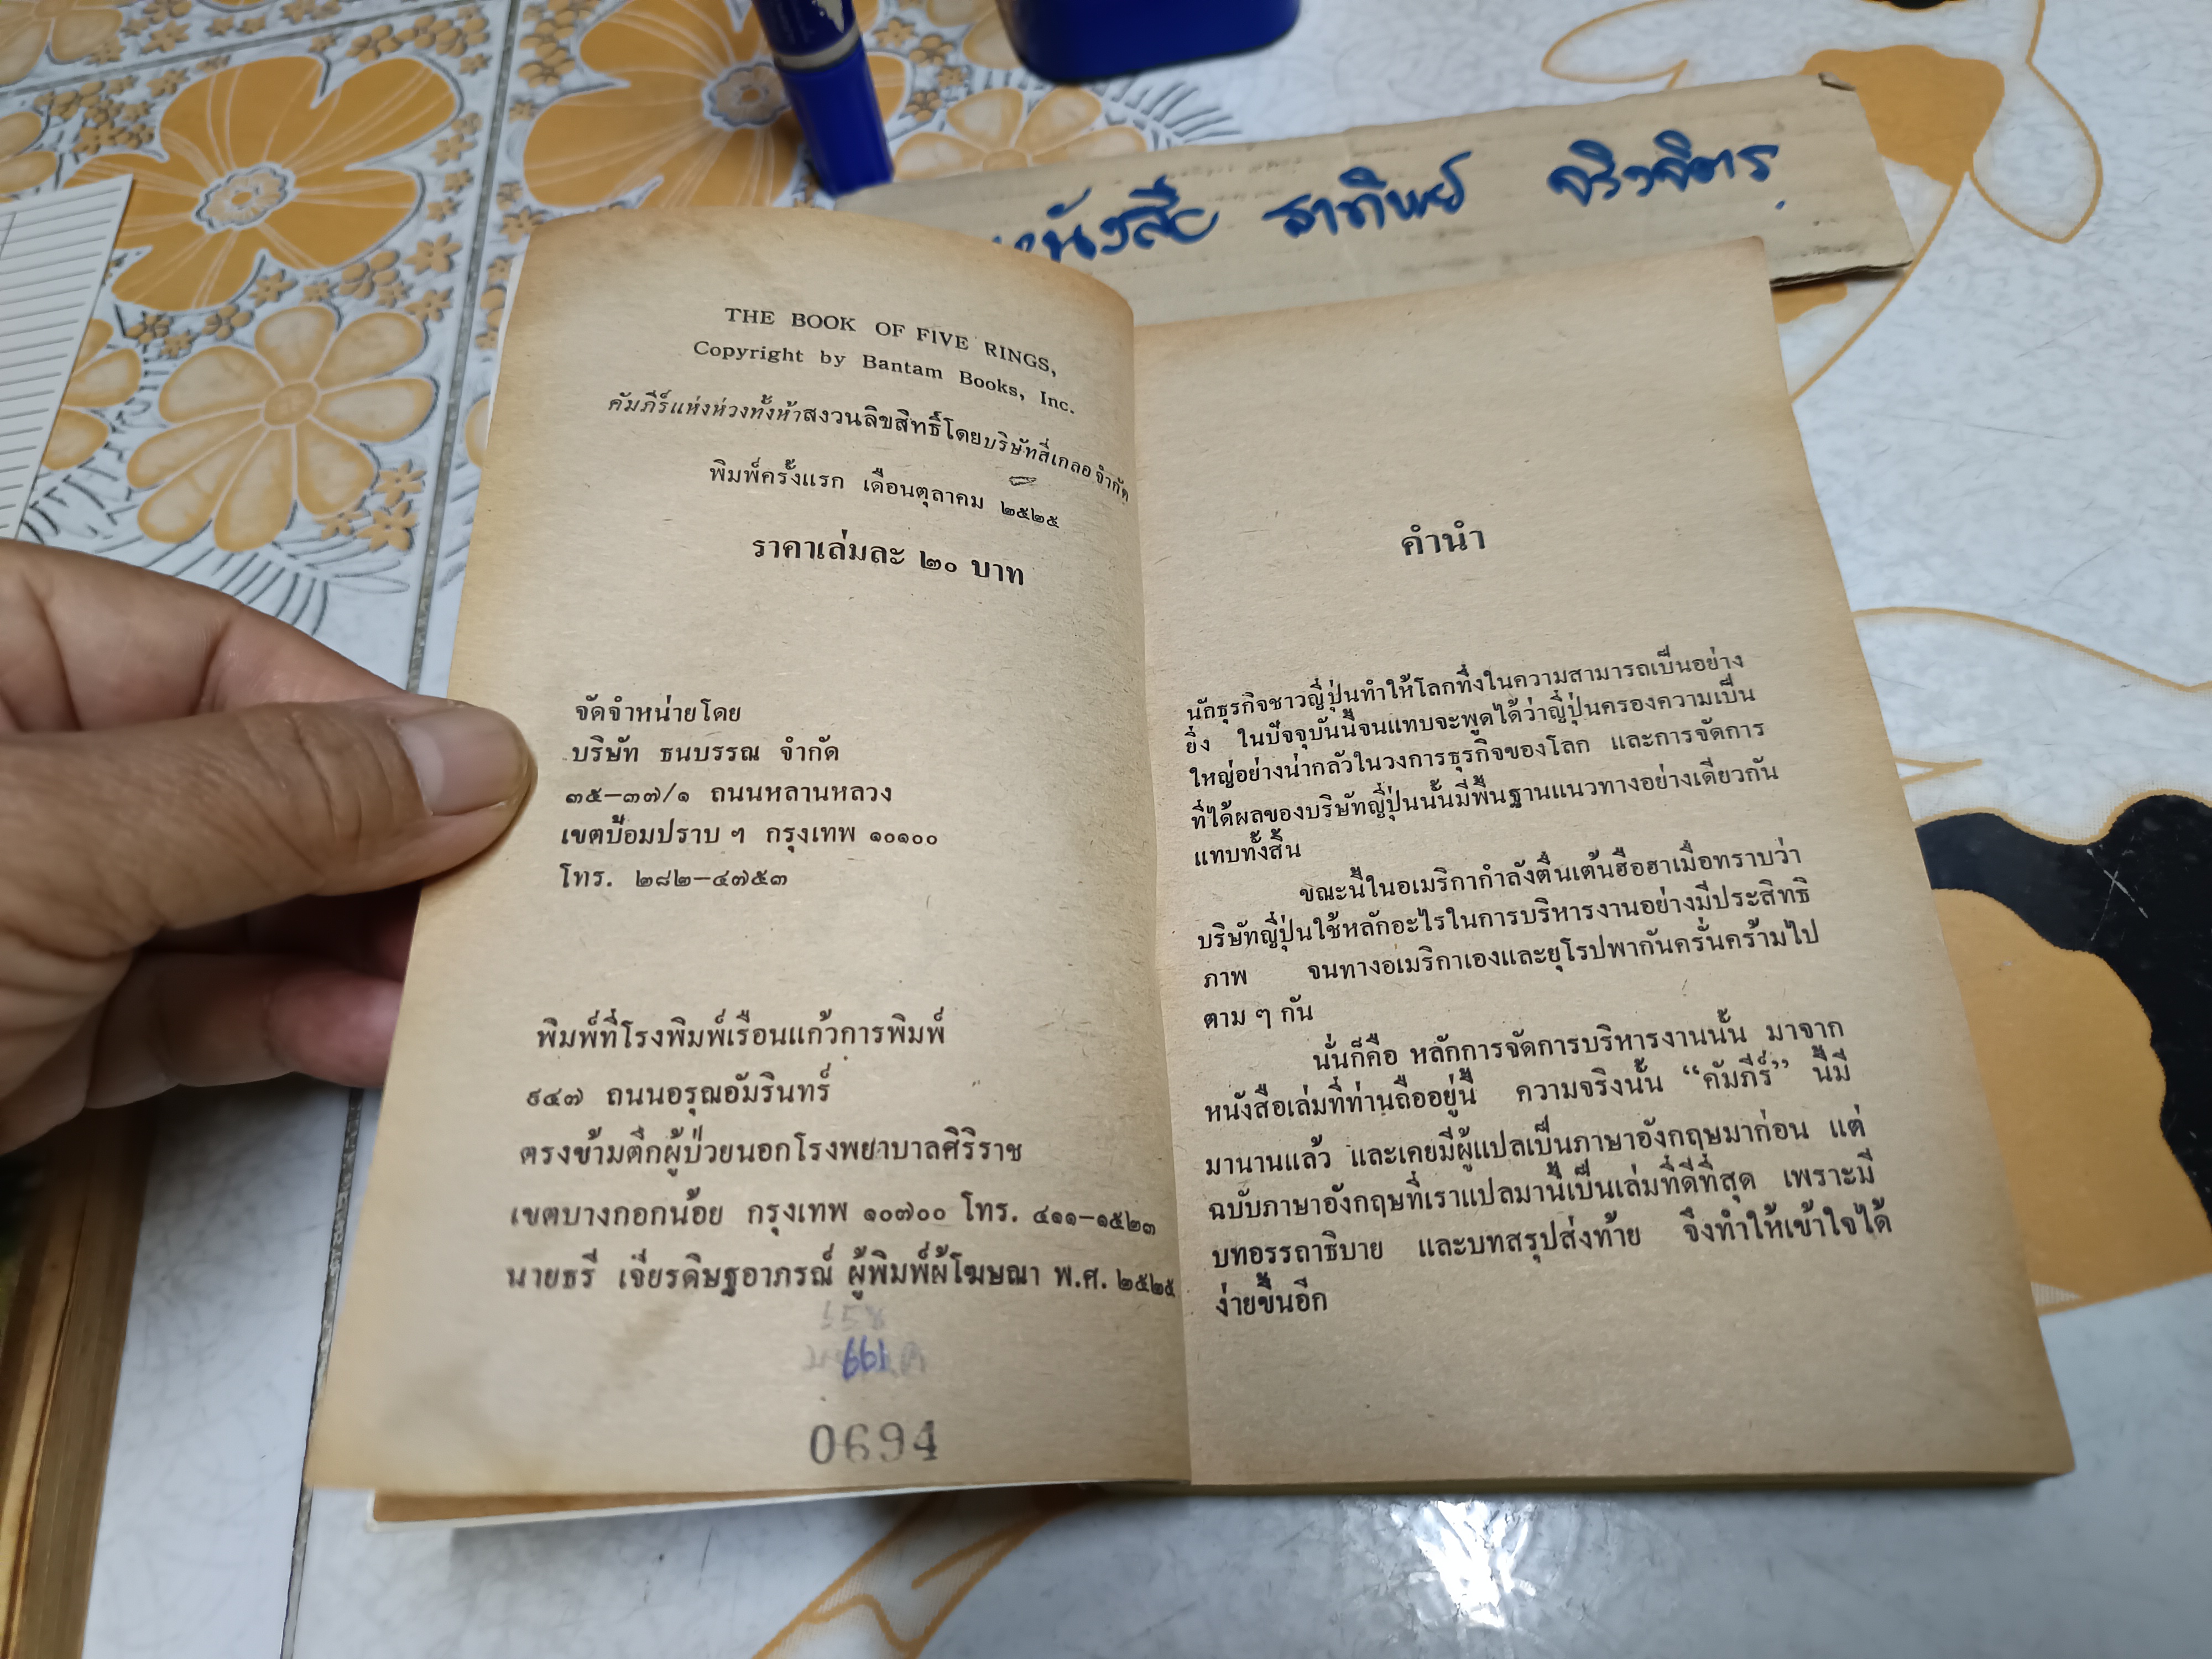 หนังสือ ธาทิพย์ จริงจิตร
THE BOOK OF FIVE RINGS,
Copyright by Bantam Books, Inc.
คัมภีร์แห่งห่วงทั้งห้าสงวนลิขสิทธิ์โดยบริษัทสี่เกลอ จำกัด
พิมพ์ครั้งแรก เดือนตุลาคม ๒๕๒๕
ราคาเล่มละ ๒๐ บาท
จัดจำหน่ายโดย
บริษัท ธนบรรณ จำกัด
๓๕—๓๗/๑ ถนนหลานหลวง
เขตป้อมปราบ ๆ กรุงเทพ ๑๐๑๐๐
โทร. ๒๘๒—๔๗๕๓
พิมพ์ที่โรงพิมพ์เรือนแก้วการพิมพ์
๙๔๗ ถนนอรุณอัมรินทร์
ตรงข้ามตึกผู้ป่วยนอกโรงพยาบาลศิริราช
เขตบางกอกน้อย กรุงเทพ ๑๐๗๐๐ โทร. ๔๑๑—๑๕๒๓
นายธรี เจียรดิษฐอาภรณ์ ผู้พิมพ์ผู้โฆษณา พ.ศ. ๒๕๒๕
0694
คำนำ
นักธุรกิจชาวญี่ปุ่นทำให้โลกทึ่งในความสามารถเป็นอย่าง
ยิ่ง ในปัจจุบันนี้จนแทบจะพูดได้ว่าญี่ปุ่นครองความเป็น
ใหญ่อย่างน่ากลัวในวงการธุรกิจของโลก และการจัดการ
ที่ได้ผลของบริษัทญี่ปุ่นนั้นมีพื้นฐานแนวทางอย่างเดียวกัน
แทบทั้งสิ้น
ขณะนี้ในอเมริกากำลังตื่นเต้นฮือฮาเมื่อทราบว่า
บริษัทญี่ปุ่นใช้หลักอะไรในการบริหารงานอย่างมีประสิทธิ
ภาพ จนทางอเมริกาเองและยุโรปพากันครั่นคร้ามไป
ตาม ๆ กัน
นั่นก็คือ หลักการจัดการบริหารงานนั้น มาจาก
หนังสือเล่มที่ท่านถืออยู่นี้ ความจริงนั้น “คัมภีร์” นี้มี
มานานแล้ว และเคยมีผู้แปลเป็นภาษาอังกฤษมาก่อน แต่
ฉบับภาษาอังกฤษที่เราแปลมานี้เป็นเล่มที่ดีที่สุด เพราะมี
บทอรรถาธิบาย และบทสรุปส่งท้าย จึงทำให้เข้าใจได้
ง่ายขึ้นอีก